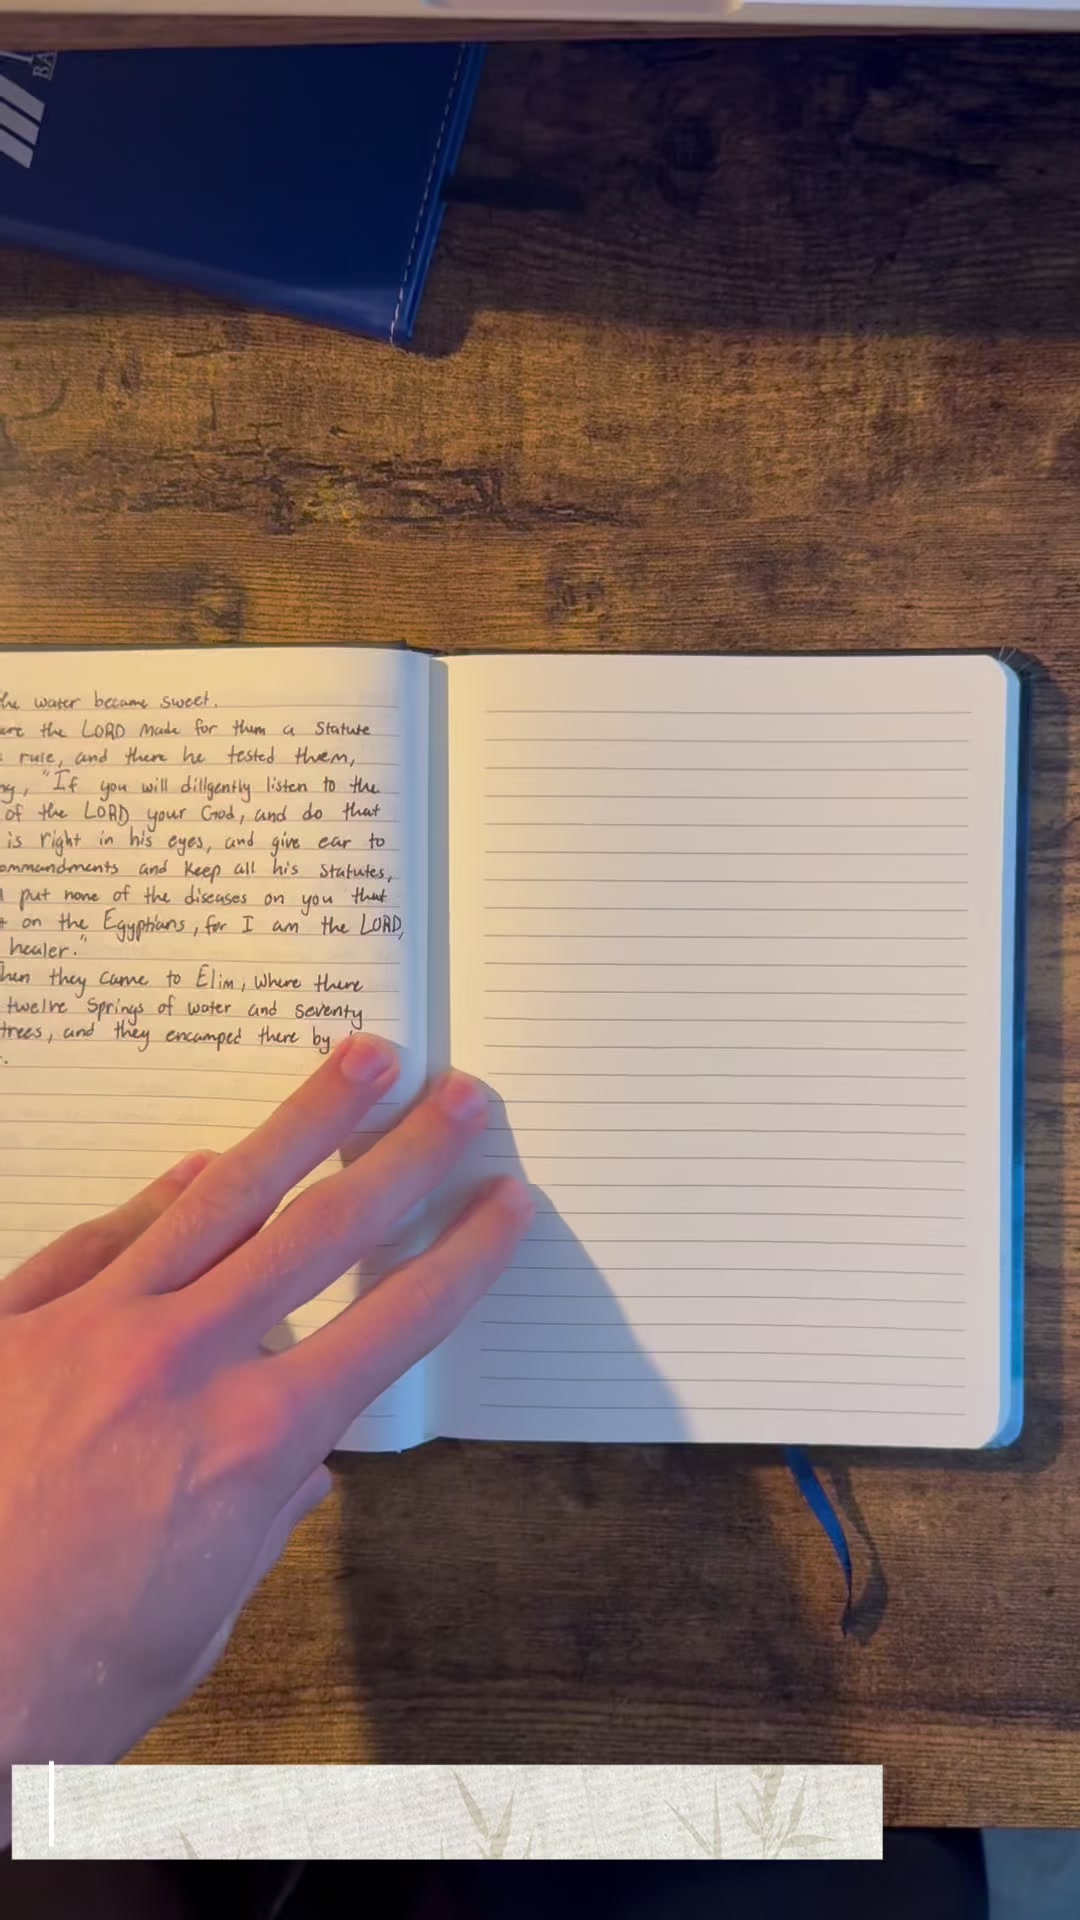 BA
he water became sweet.
ere the LORD made for them a statute
rule, and there he tested them,
ng, "If you will dillgently listen to the
of the LORD your God, and do that
is right in his eyes, and give ear to
ommandments and keep all his statutes,
put none of the diseases on you that
on the Egyptians, for I am the LORD,
healer."
hen they came to Elim, where there
twelve springs of water and seventy
trees, and they encamped there by